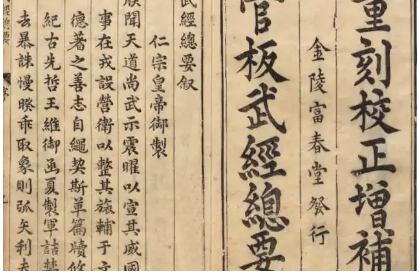 重刻校正增補
金陵富春堂發行
官板武經總要
武經總要叙
仁宗皇帝御製
朕聞天道尚武示震曜以宣其威國
事在戎設營衛以整其旅輔于文
德著之善志自繩契斯革篇牘攸
紀古先哲王維御函夏製軍詰
去暴誅慢睽乖取象則弧矢利